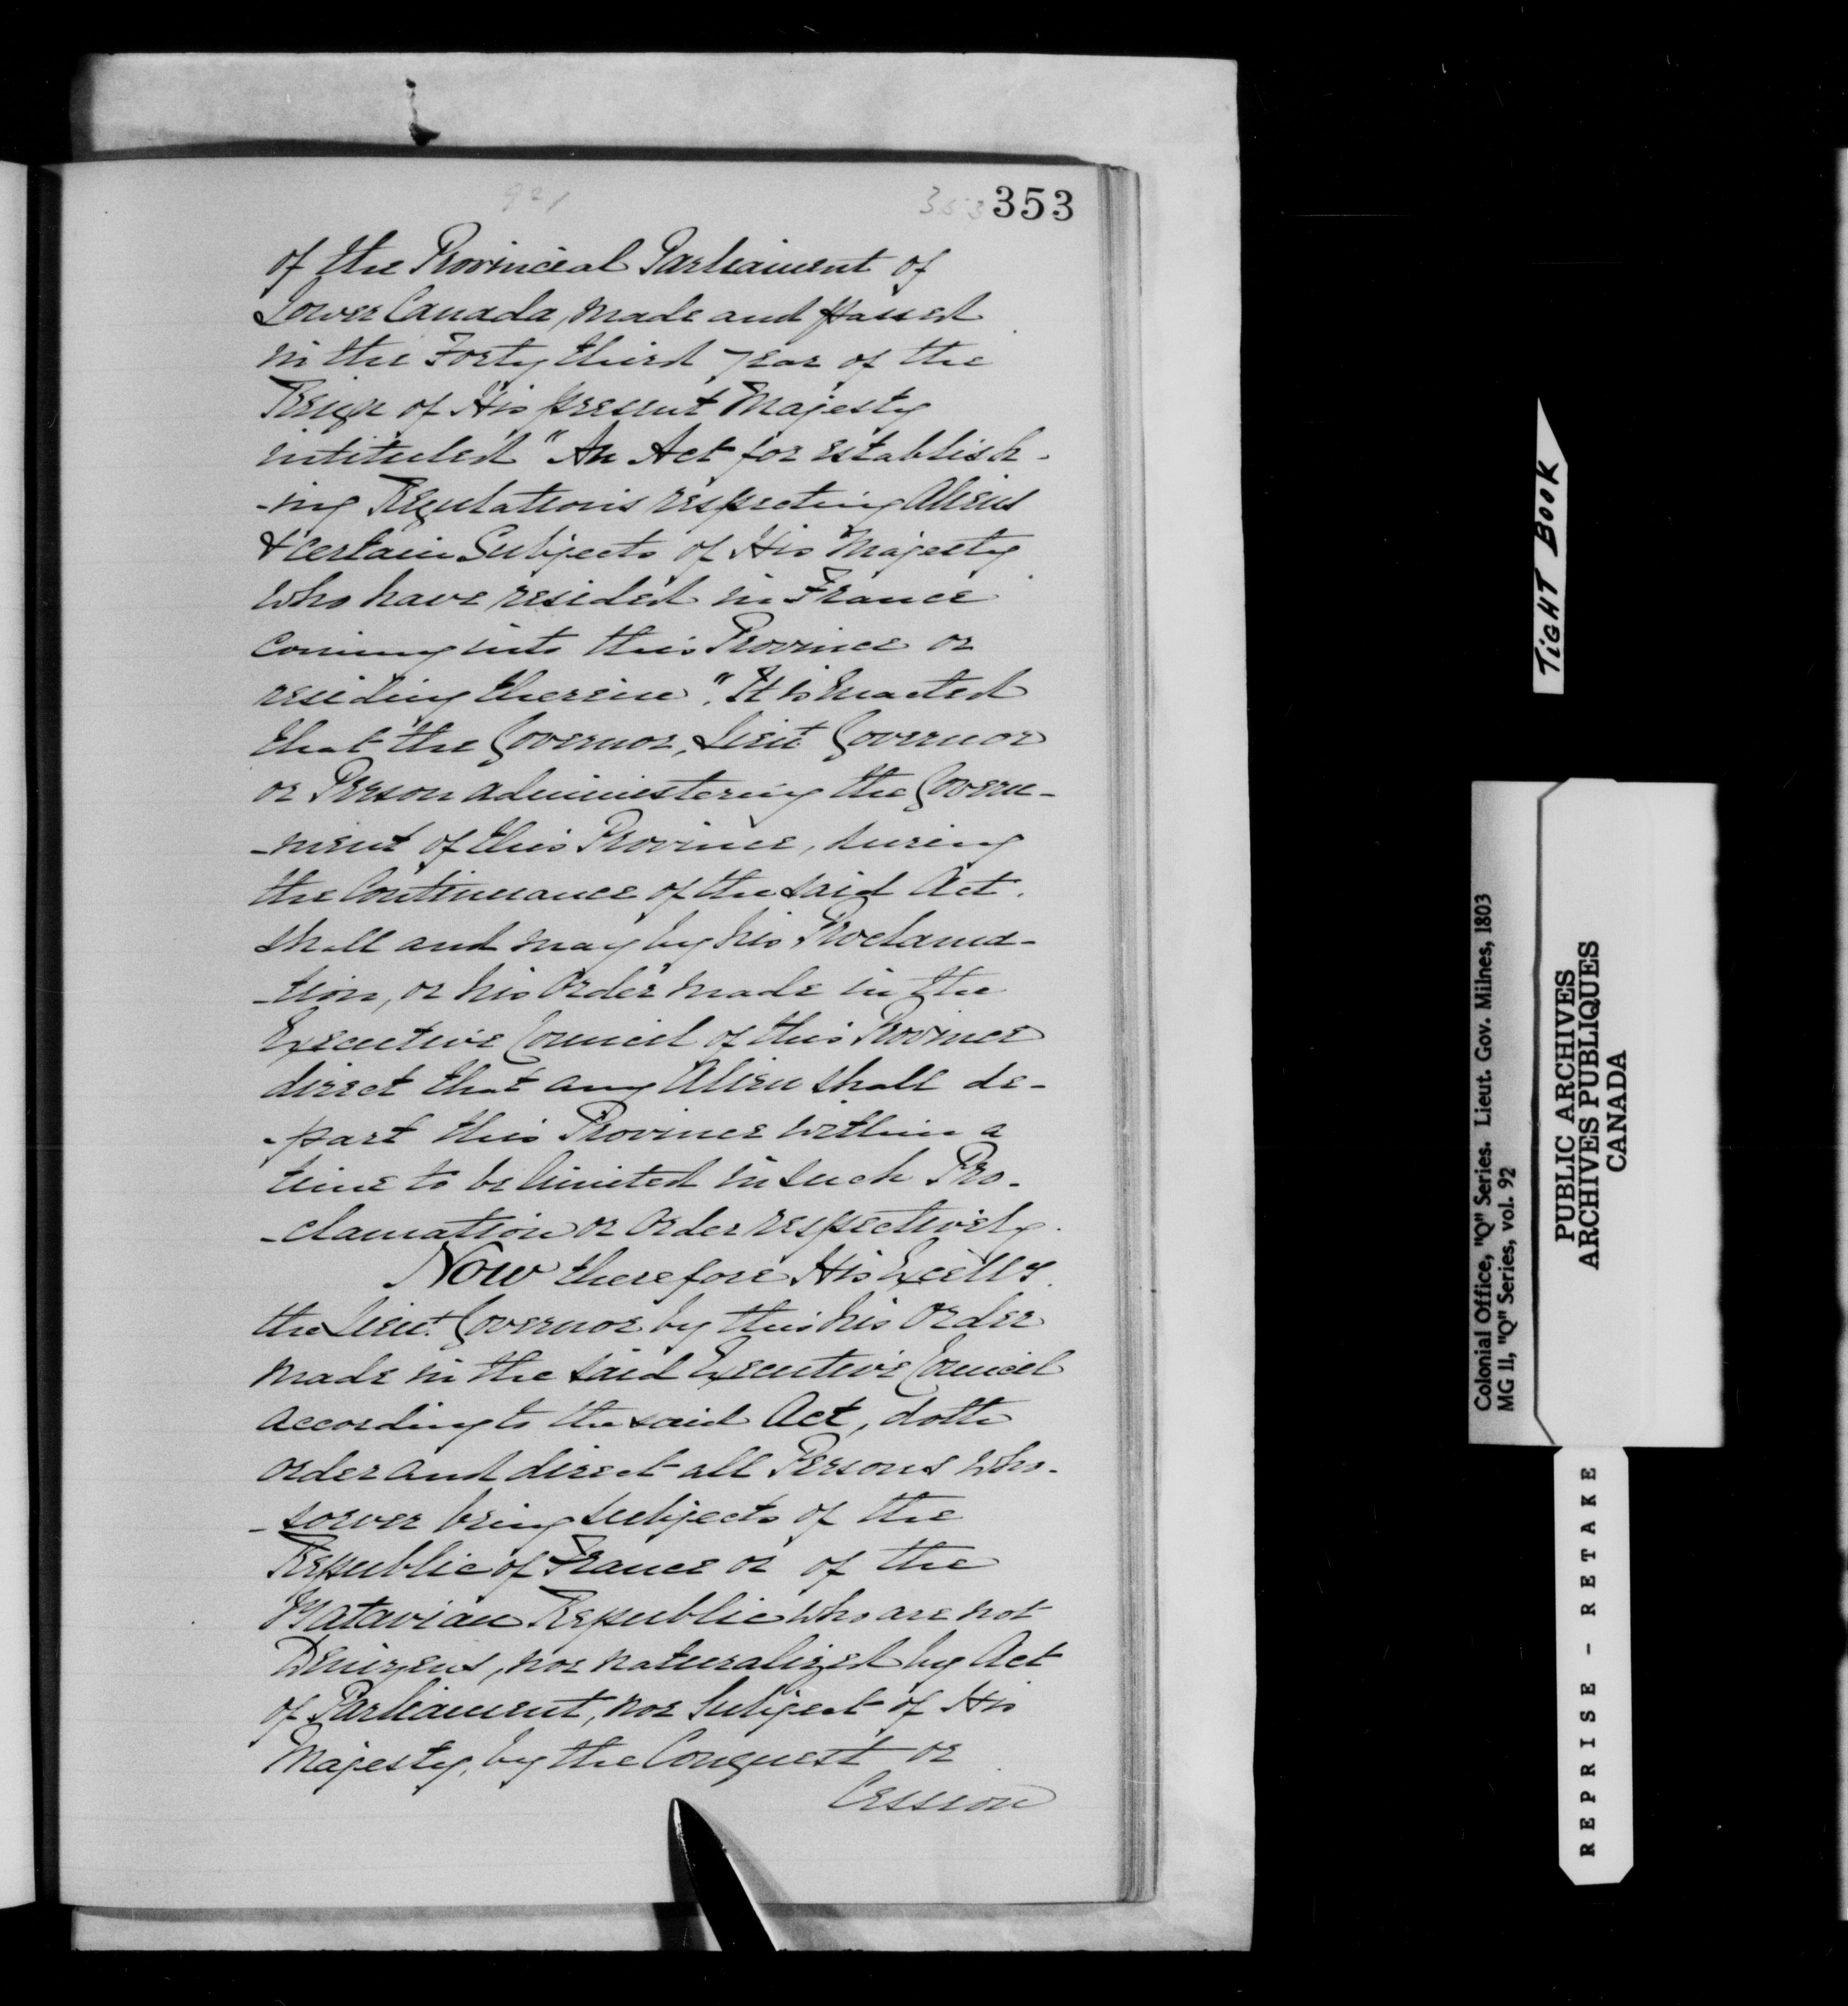 353 353
of the Provincial Parliament of
Lower Canada, made and passed
in the Forty third year of the
Reign of His present Majesty
intituled "An Act for establish-
-ing Regulations respecting Aliens
& certain Subjects of His Majesty
who have resided in France
coming into this Province or
residing therein". It is Enacted
that the Governor, Lieut Governor
or Person administering the Govern-
-ment of this Province, during
the Continuance of the said Act.
shall and may by his Proclama-
-tion, or his Order made in the
Executive Council of this Province
direct that any Alien shall de-
-part this Province within a
time to be limited in such Pro-
-clamation or Order respectively.
Now therefore His Excelly.
the Lieut. Governor by this his Order
made in the said Executive Council
according to the said Act, doth
order and direct all Persons who-
-soever being subjects of the
Republic of France or of the
Batavian Republic who are not
Denizens, nor naturalized by Act
of Parliament, nor Subject of His
Majesty, by the Conquest or
Cession
TIGHT BOOK
Colonial Office, "Q" Series. Lieut. Gov. Milnes, 1803
MG 11, "Q" Series, vol. 92
PUBLIC ARCHIVES
ARCHIVES PUBLIQUES
CANADA
REPRISE - RETAKE